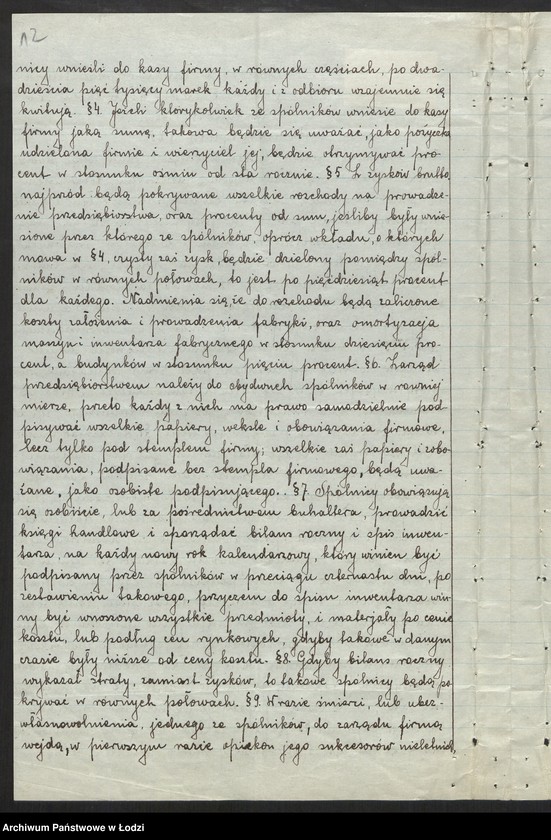 12
nicy wnieśli do kasy firmy, w równych częściach, po dwa-
dzieścia pięć tysięcy marek każdy i z odbioru wzajemnie się
kwitują. §4. Jeżeli którykolwiek ze spólników wniesie do kasy
firmy jaką sumę, takowa będzie się uważać, jako pożyczka
udzielona firmie i wierzyciel jej, będzie otrzymywać pro-
cent w stosunku ośmiu od sta rocznie. §5 Z zysków brutto,
najprzód będą pokrywane wszelkie rozchody na prowadze-
nie przedsiębiorstwa, oraz procenty od sum, jeśliby były wnie-
sione przez którego ze spólników, oprócz wkładu, o których
mowa w §4, czysty zaś zysk, będzie dzielony pomiędzy spól-
ników w równych połowach, to jest po pięćdziesiąt procent
dla każdego. Nadmienia się, że do rozchodu będą zaliczone
koszty założenia i prowadzenia fabryki, oraz amortyzacja
maszyn i inwentarza fabrycznego w stosunku dziesięciu pro-
cent, a budynków w stosunku pięciu procent. §6. Zarząd
przedsiębiorstwem należy do obydwuch spólników w równej
mierze, przeto każdy z nich ma prawo samodzielnie pod-
pisywać wszelkie papiery, weksle i obowiązania firmowe,
lecz tylko pod stemplem firmy; wszelkie zaś papiery i zobo-
wiązania, podpisane bez stempla firmowego, będą uwa-
żane, jako osobiste podpisującego. §7. Spólnicy obowiązują
się osobiście, lub za pośrednictwem buhaltera, prowadzić
księgi handlowe i sporządać bilans roczny i spis inwen-
tarza, na każdy nowy rok kalendarzowy, który winien być
podpisany przez spólników w przeciągu czternastu dni, po
zestawieniu takowego, przyczem do spisu inwentarza win-
ny być wnoszone wszystkie przedmioty, i materjały po cenie
kosztu, lub podług cen rynkowych, gdyby takowe w danym
czasie były niższe od ceny kosztu. §8. Gdyby bilans roczny
wykazał straty, zamiast zysków, to takowe spólnicy będą po-
krywać w równych połowach. §9. W razie śmierci, lub ubez-
własnowolnienia, jednego ze spólników, do zarządu firmą
wejdą, w pierwszym razie opiekun jego sukcesorów nieletnich,
Archiwum Państwowe w Łodzi